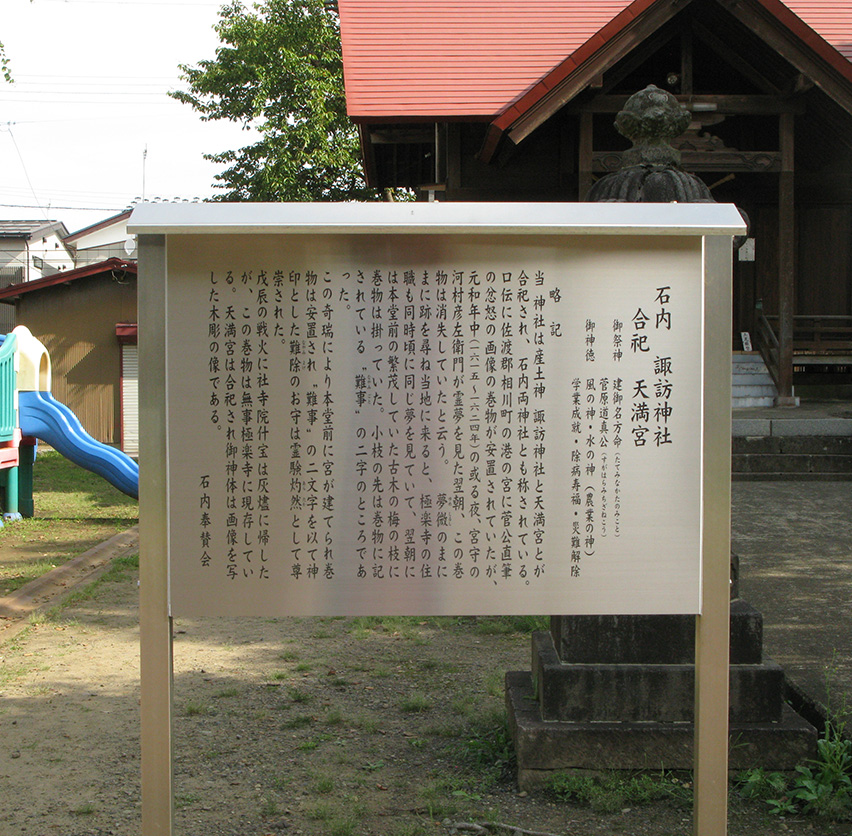 石内　諏訪神社
合祀　天満宮
御祭神　建御名方命（たてみなかたのみこと）
菅原道真公（すがはらみちざねこう）
御神徳　風の神・水の神（農業の神）
学業成就・除病寿福・災難解除
略記
当　神社は産土神　諏訪神社と天満宮とが
合祀され、石内両神社とも称されている。
口伝に佐渡郡相川町の港の宮に菅公直筆
の忿怒の画像の巻物が安置されていたが、
元和年中（一六一五～一六二四年）の或る夜、宮守の
河村彦左衛門が霊夢を見た翌朝、この巻
物は消失していたと云う。　夢徴のまに
まに跡を尋ね当地に来ると、極楽寺の住
職も同時頃に同じ夢を見ていて、翌朝に
は本堂前の繁茂していた古木の梅の枝に
巻物は掛っていた。小枝の先は巻物に記
されている〝難事〟の二字のところであ
った。
この奇瑞により本堂前に宮が建てられ巻
物は安置され〝難事〟の二文字を以て神
印とした難除のお守は霊験灼然として尊
崇された。
戊辰の戦火に社寺院什宝は灰燼に帰した
が、この巻物は無事極楽寺に現存してい
る。天満宮は合祀され御神体は画像を写
した木彫の像である。
石内奉賛会